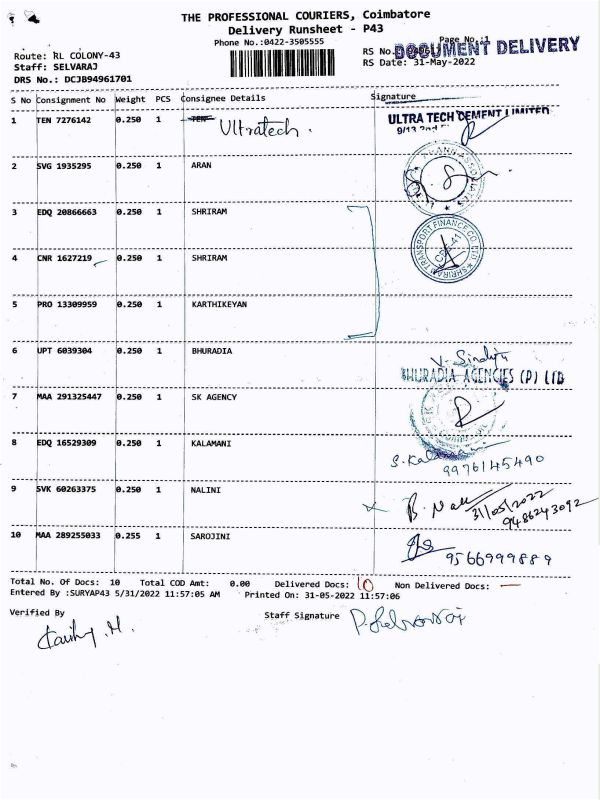 THE PROFESSIONAL COURIERS, Coimbatore
Delivery Runsheet - P43
Phone No.:0422-3505555
Page No.:1
Route: RL COLONY-43
RS No.:
DOCUMENT DELIVERY
Staff: SELVARAJ
RS Date: 31-May-2022
DRS No.: DCJB94961701
S No Consignment No Weight PCS Consignee Details Signature
1 TEN 7276142 0.250 1 TEN Ultratech. ULTRA TECH CEMENT LIMITED
9/13 2nd
2 SVG 1935295 0.250 1 ARAN
3 EDQ 20866663 0.250 1 SHRIRAM
SHRIRAM TRANSPORT FINANCE CO LTD
CBE-41
4 CNR 1627219 0.250 1 SHRIRAM
5 PRO 13309959 0.250 1 KARTHIKEYAN
6 UPT 6039304 0.250 1 BHURADIA
BHURADIA AGENCIES (P) LTD
7 MAA 291325447 0.250 1 SK AGENCY
8 EDQ 16529309 0.250 1 KALAMANI S. Kalamani
9976145490
9 SVK 60263375 0.250 1 NALINI
31/05/2022
9486243092
10 MAA 289255033 0.255 1 SAROJINI
9566999889
Total No. Of Docs: 10 Total COD Amt: 0.00 Delivered Docs: 10 Non Delivered Docs: —
Entered By :SURYAP43 5/31/2022 11:57:05 AM Printed On: 31-05-2022 11:57:06
Verified By Staff Signature